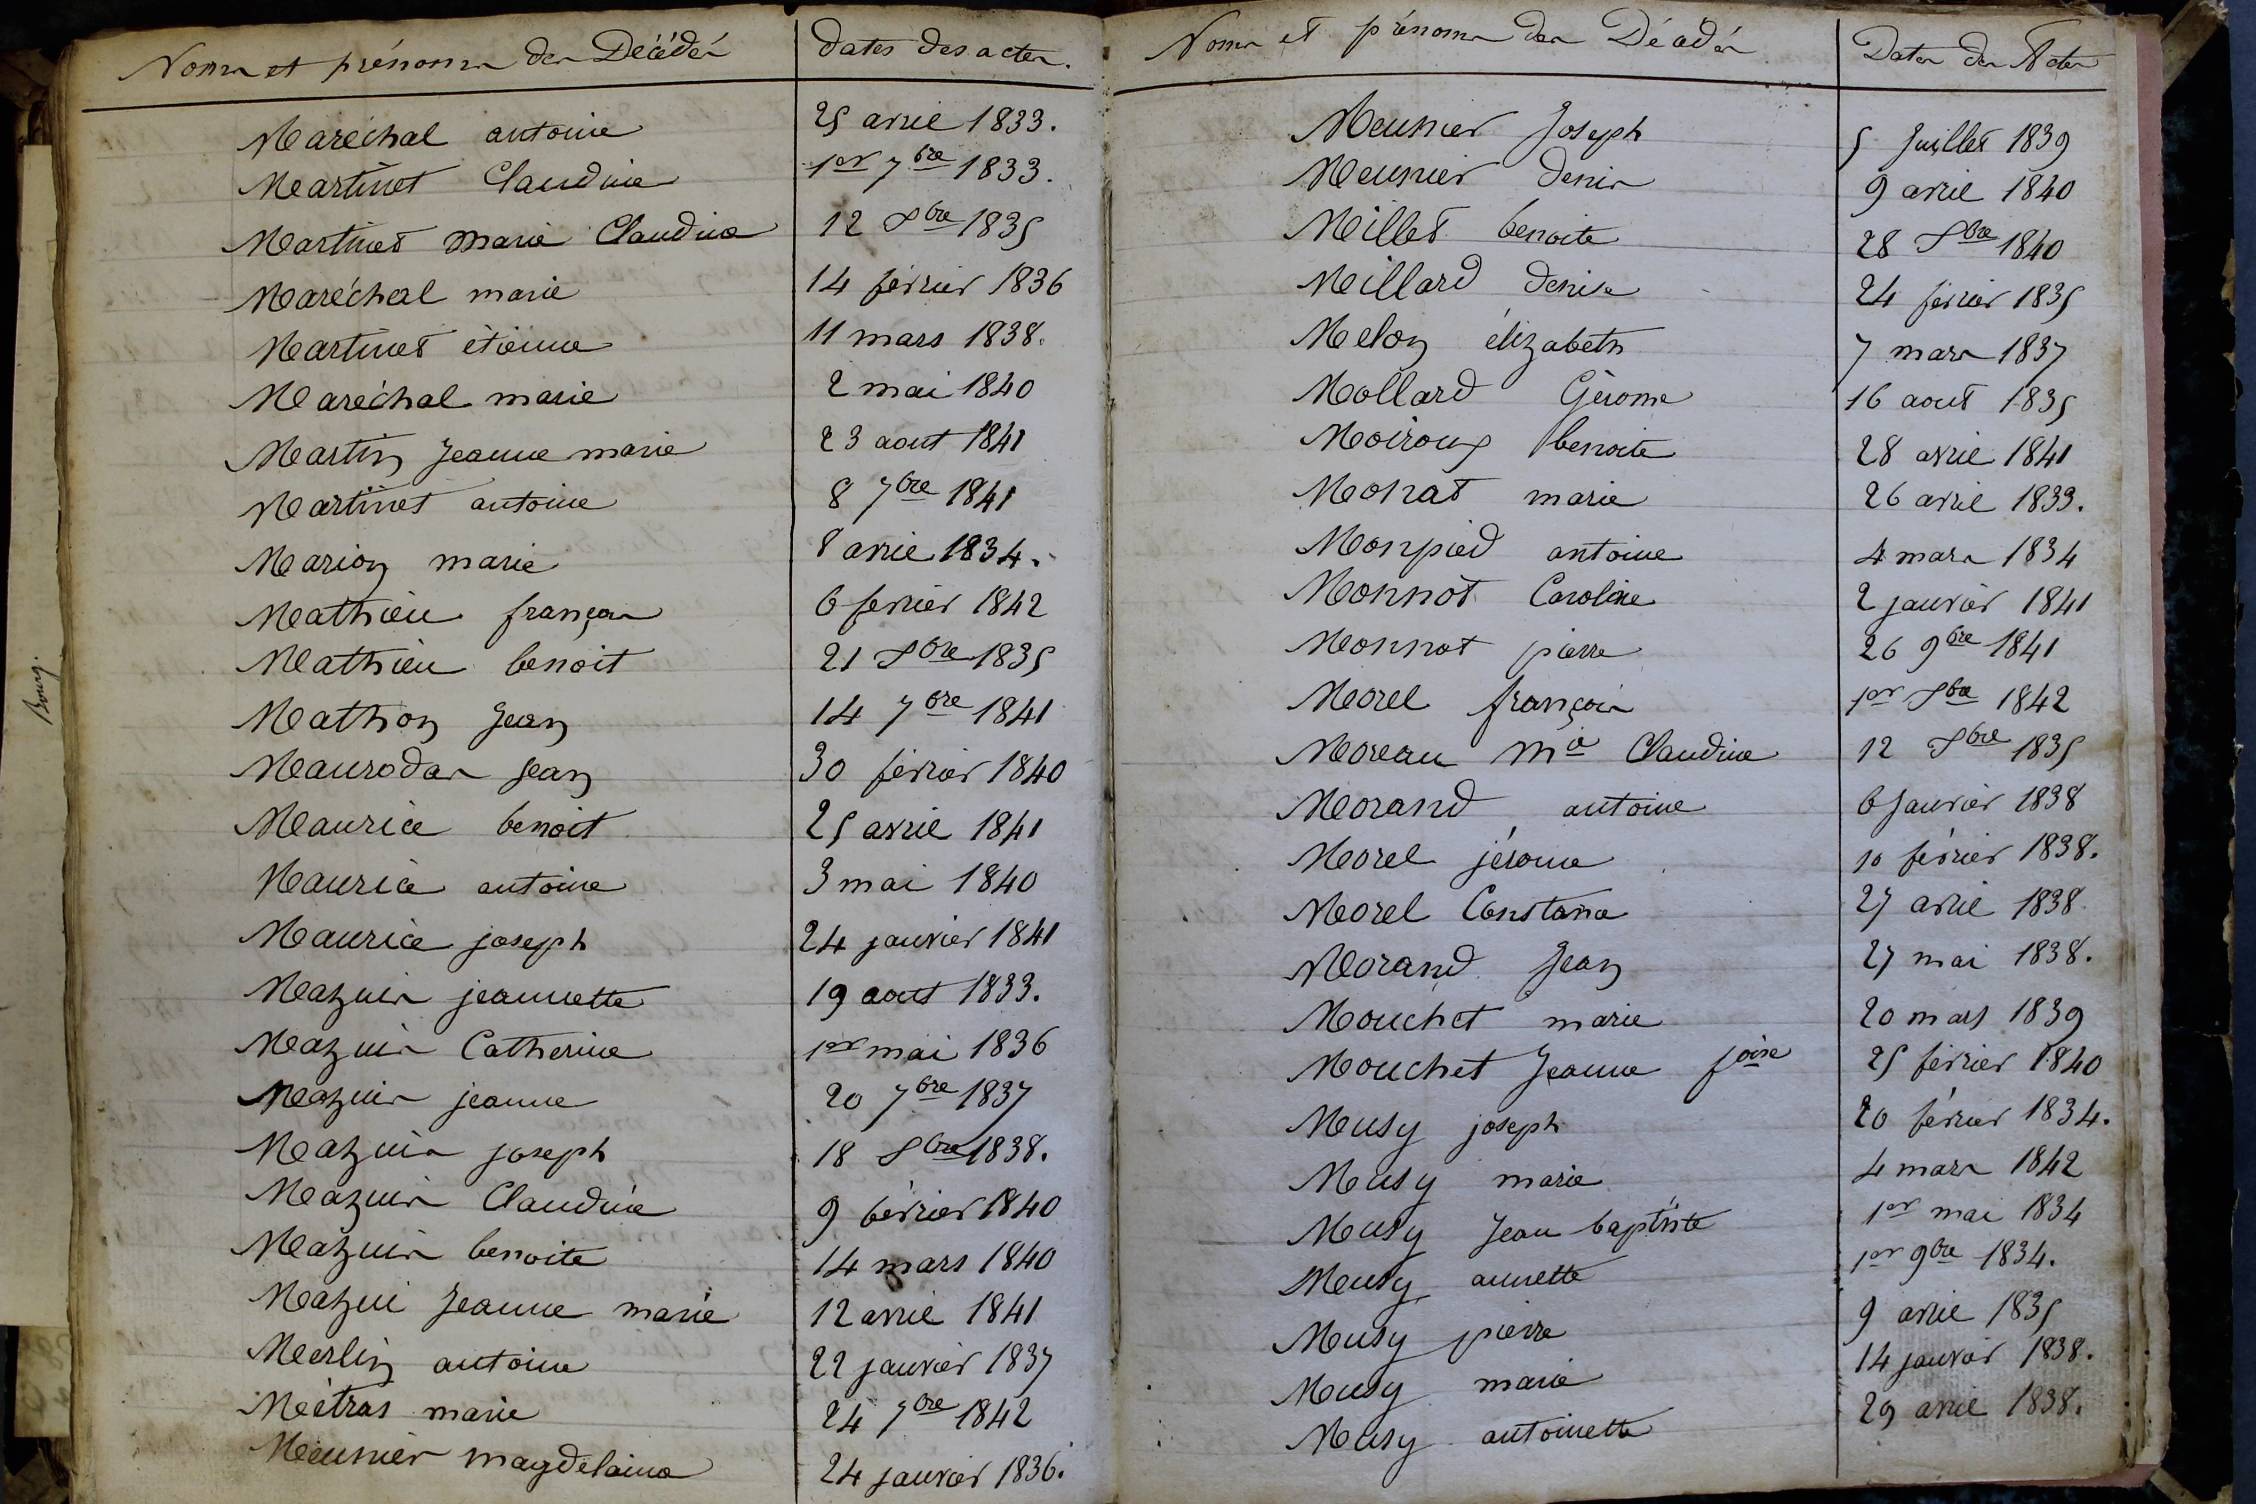 Noms et prénoms des Décédés dates des actes.
Maréchal antoine 25 avril 1833.
Martinet Claudine 1er 7bre 1833.
Martinet marie Claudine 12 8bre 1835
Maréchal marie 14 février 1836
Martinet étienne 11 mars 1838.
Maréchal marie 2 mai 1840
Martin Jeanne marie 23 aout 1841
Martinet antoine 8 7bre 1841
Marion marie 8 avril 1834.
Mathieu françois 6 fevrier 1842
Mathieu benoit 21 8bre 1835
Mathon Jean 14 7bre 1841
Maurodas Jean 30 février 1840
Maurice benoit 25 avril 1841
Maurice antoine 3 mai 1840
Maurice joseph 24 janvier 1841
Mazuis jeannette 19 aout 1833.
Mazuis Catherine 1er mai 1836
Mazuis jeanne 20 7bre 1837
Mazuis joseph 18 8bre 1838.
Mazuis Claudine 9 février 1840
Mazuis benoite 14 mars 1840
Mazui Jeanne marie 12 avril 1841
Merlin antoine 22 janvier 1837
Métras marie 24 7bre 1842
Meunier magdelaine 24 janvier 1836.
Bourg.
Noms et prénoms des Décédés Dates des Actes
Meunier Joseph 5 Juillet 1839
Meunier denis 9 avril 1840
Millet benoite 28 8bre 1840
Millard denise 24 février 1835
Melon élizabeth 7 mars 1837
Mollard Gérome 16 aout 1835
Moiroux benoite 28 avril 1841
Monat marie 26 avril 1833.
Monpied antoine 4 mars 1834
Monnot Caroline 2 janvier 1841
Monnot pierre 26 9bre 1841
Morel françois 1er 8bre 1842
Moreau Mie Claudine 12 8bre 1835
Morand antoine 6 Janvier 1838
Morel jérome 10 février 1838.
Morel Constance 27 avril 1838
Morand Jean 27 mai 1838.
Mouchet marie 20 mars 1839
Mouchet Jeanne foise 25 février 1840
Musy joseph 20 février 1834.
Musy marie 4 mars 1842
Musy Jean baptiste 1er mai 1834
Musy annette 1er 9bre 1834.
Musy pierre 9 avril 1835
Musy marie 14 janvier 1838.
Musy antoinette 29 avril 1838.